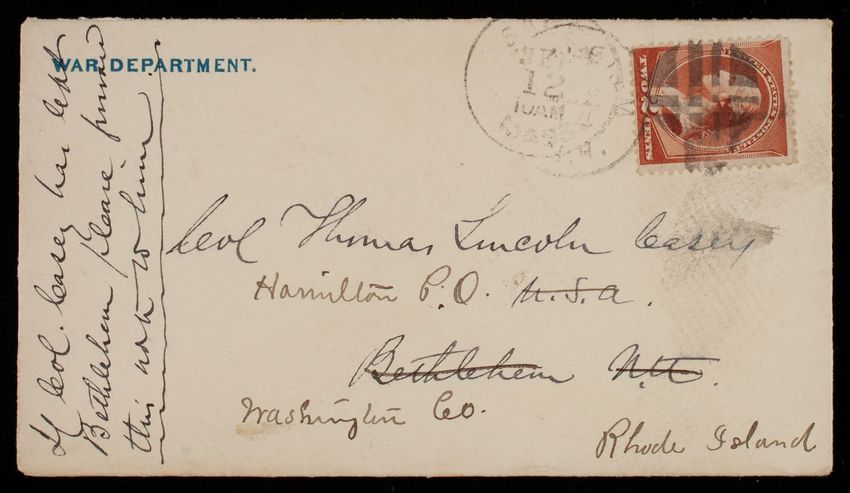 WAR DEPARTMENT.
SEP
12
10AM
MASS.
UNITED STATES POSTAGE
TWO 2 CENTS
If Col. Casey has left
Bethlehem please forward
this note to him
Col Thomas Lincoln Casey
Hamilton P.O. U.S.A.
Bethlehem N.H.
Washington Co.
Rhode Island